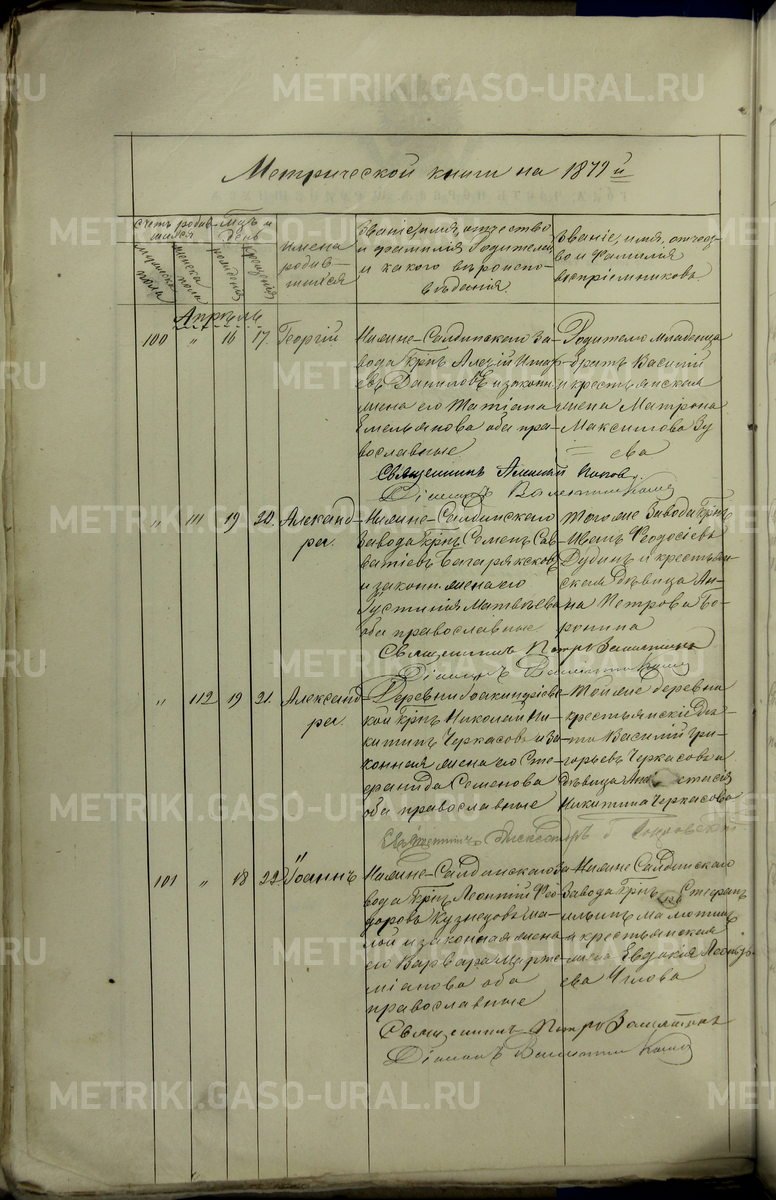 METRIKI.GASO-URAL.RU
Метрической книги на 1879й
Счетъ родив-
шихся
Мужеска
пола
Женска
пола
Мѣс. и
день
рожденія
крещенія
Имена
родив-
шихся
Званіе, имя, отчество
и фамилія родителей
и какого вѣроиспо-
вѣданія.
Званіе, имя, отчест-
во и фамилія
воспріемниковъ
Апрѣль
100 " 16 17. Георгій
Нижне-Салдинскаго За-
вода Крнъ
евъ Даниловъ и законн
жена его Татіана
Емельянова оба пра-
вославные
Родителю младенца
братъ Василій
и крестьянская
жена Матрона
Максимова Зу
ева
Священникъ Алексій Попов.
Діаконъ Валентинъ
" 111 19 20. Александ-
ра.
Нижне-Салдинскаго
Завода Крнъ Семенъ Сав-
ватіевъ Багарякской
и законн. жена его
Густинія Матвѣева
оба православные
Тогоже Завода Крнъ
Иванъ Феодосіевъ
Дудинъ и крестьян-
ская дѣвица Ан-
на Петрова Во-
ронина
Священникъ Петръ
Діаконъ Валентинъ
" 112 19 21. Александ-
ра.
Деревни
кой Крнъ Николай Ни-
китинъ Черкасовъ и за-
конная жена его Сте-
фанида Семенова
оба православные
Тойже деревни
крестьянскіе дѣ-
ти Василій Гри-
горьевъ Черкасовъ и
дѣвица Анастасія
Никитина Черкасова
Священникъ Александръ
101 " 18 22. Іоаннъ
Нижне-Салдинскаго За
вода Крнъ Леонтій Фео
доровъ Кузнецовъ
и законная жена
его Варвара Марте-
міанова оба
православные
Нижне Салдинскаго
Завода Крнъ Стефанъ
Малютинъ
и крестьянская
жена Евдокія
ева Углова
Священникъ Петръ
Діаконъ Валентинъ